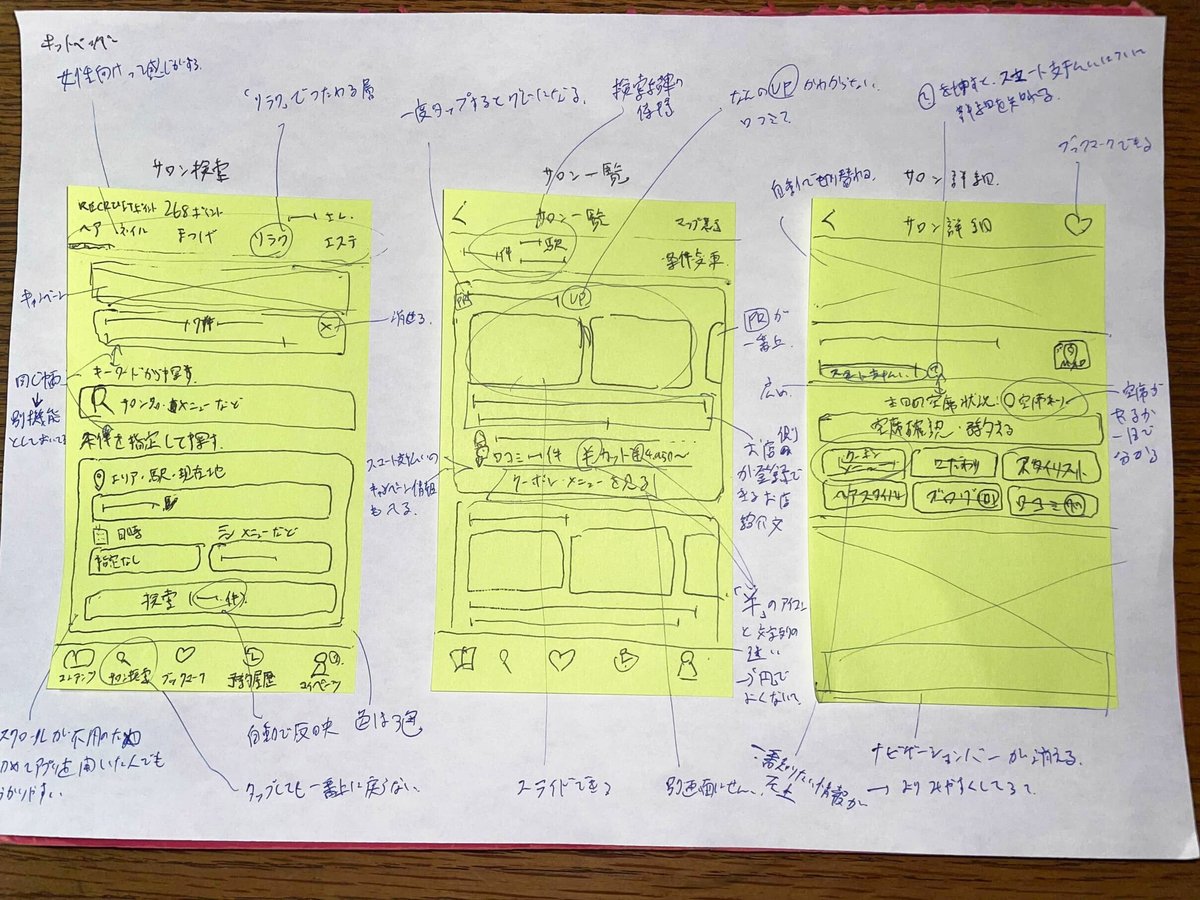 ホットペッパー
女性向けって感じがする。
「リラク」でつたわる層
一度タップするとグレーになる。
検索結果の保持
なんのUPかわからない。
口コミ?
を押すと、スマート支払いについて
詳細を知れる。
ブックマークできる
サロン検索
RECRUITポイント 268ポイント
ヘア ネイル まつげ リラク エステ
キャンペーン
消せる。
同じ枠
↓
別機能
としておいてる
キーワードから探す。
サロン名・メニューなど
条件を指定して探す。
エリア・駅・現在地
日時
メニューなど
指定なし
検索 (一件)
サロン検索
ブックマーク
予約履歴
マイページ
スクロールが不用のため
初めてアプリを開いた人でも
分かりやすい。
タップしても一番上に戻らない。
自動で反映
色は3色
サロン一覧
サロン一覧
マップ表示
件
駅
条件変更
PR
UP
PRが
一番上
広め
口コミ一件
カット ¥4,050〜
クーポン・メニューを見る
スマート支払いの
キャンペーン情報
も入る。
お店側
のみ
が登録で
きるお店
紹介文
「¥」のアイコン
と文字列の
違い
スライドできる
別画面にせん。
自動で切り替わる。
サロン詳細
サロン詳細
MAP
スマート支払い
本日の空席状況:○空席あり
空席確認・予約する
クーポン
メニュー
こだわり
スタイリスト
ヘアスタイル
ブログ
口コミ
空席が
あるか
一目で
分かる
一番知りたい情報が
左上
ナビゲーションバーが消える。
→ よりみやすくしてるて。